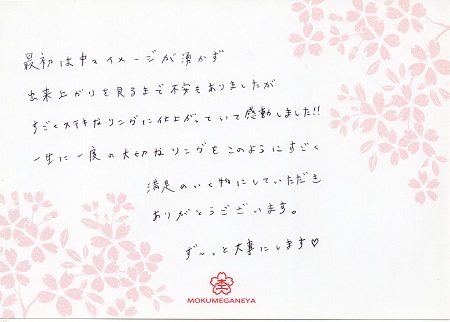 最初は中々イメージが湧かず
出来上がりを見るまで不安もありましたが
すごくステキなリングに仕上がっていて感動しました!!
一生に一度の大切なリングをこのようにすごく
満足のいく物にしていただき
ありがとうございます。
ず〜っと大事にします♡
MOKUMEGANEYA